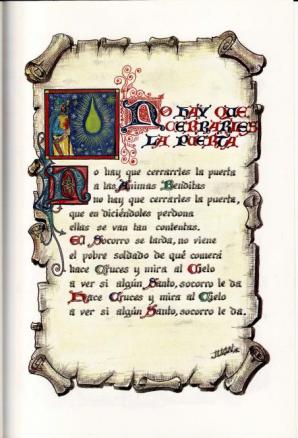 NO HAY QUE
CERRARLES
LA PUERTA
No hay que cerrarles la puerta
a las Animas Benditas
no hay que cerrarles la puerta,
que en diciéndoles perdona
ellas se van tan contentas.
El Socorro se tarda, no viene
el pobre soldado de qué comerá
hace Cruces y mira al Cielo
a ver si algún Santo, socorro le da
Hace Cruces y mira al Cielo
a ver si algún Santo, socorro le da.